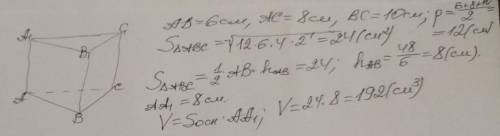 A₁ C₁
B₁
A C
B
AB=6см, AC=8см, BC=10см; p=(6+8+10)/2=12(см)
S△ABC=√12·6·4·2=24(см²)
S△ABC=1/2·AB·hAB=24; hAB=48/6=8(см).
AA₁=8см.
V=Sосн·AA₁; V=24·8=192(см³)